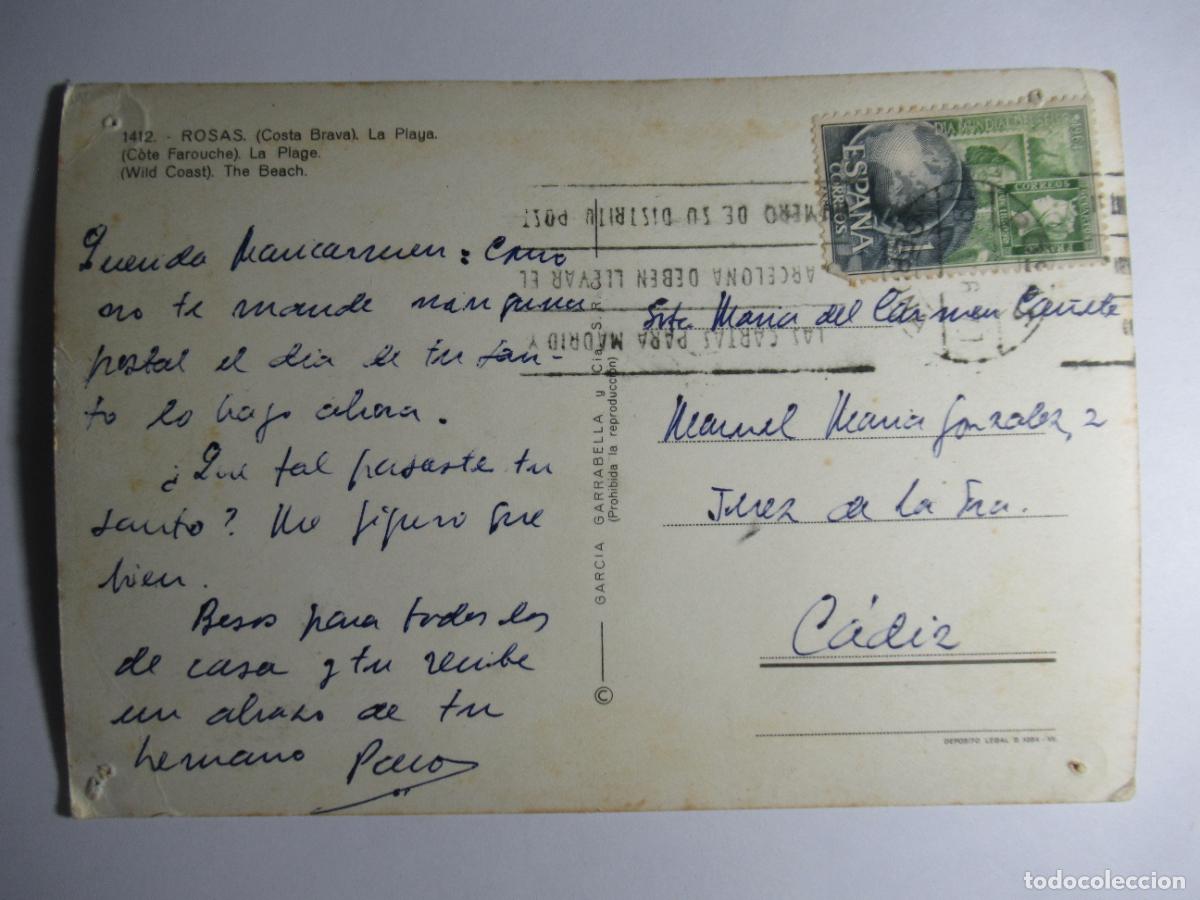 1412. - ROSAS. (Costa Brava). La Playa.
(Còte Farouche). La Plage.
(Wild Coast). The Beach.
Querida Maricarmen: Como
no te mande ninguna
postal el dia de tu san-
to lo hago ahora.
¿Que tal pasaste tu
santo? Me figuro que
bien.
Besos para todos los
de casa y tu recibe
un abrazo de tu
hermano Paco
© GARCIA GARRABELLA y Cía S. R.
(Prohibida la reproducción)
ESPAÑA
CORREOS
DIA MUNDIAL DEL SELLO
CORREOS
LAS CARTAS PARA MADRID Y
ARCELONA DEBEN LLEVAR EL
MERO DE SU DISTRITO POST
Srta Maria del Cármen Cañete
Manuel Maria Gonzalez, 2
Jerez de La Fra.
Cádiz
DEPOSITO LEGAL B. 1084 - VI.
todocoleccion